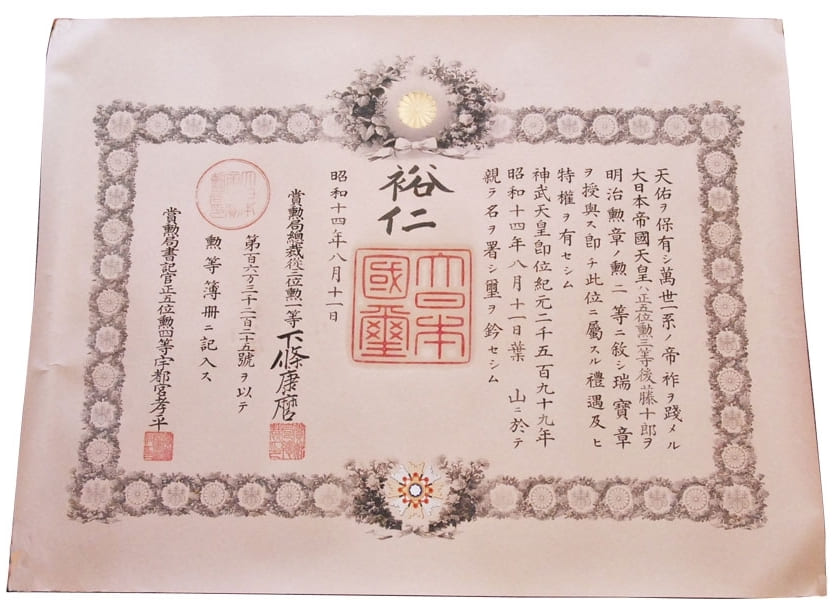 天佑ヲ保有シ萬世一系ノ帝祚ヲ踐メル
大日本帝國天皇ハ正五位勲三等後藤十郎ヲ
明治勲章ノ勲二等ニ敍シ瑞寶章
ヲ授與ス卽チ此位ニ屬スル禮遇及ヒ
特權ヲ有セシム
神武天皇卽位紀元二千五百九十九年
昭和十四年八月十一日葉山ニ於テ
親ラ名ヲ署シ璽ヲ鈐セシム
裕仁
大日本國璽
昭和十四年八月十一日
賞勲局總裁從三位勲一等下條康麿
第百六万三千二百二十五號ヲ以テ
勲等簿册ニ記入ス
賞勲局書記官正五位勲四等宇都宮孝平